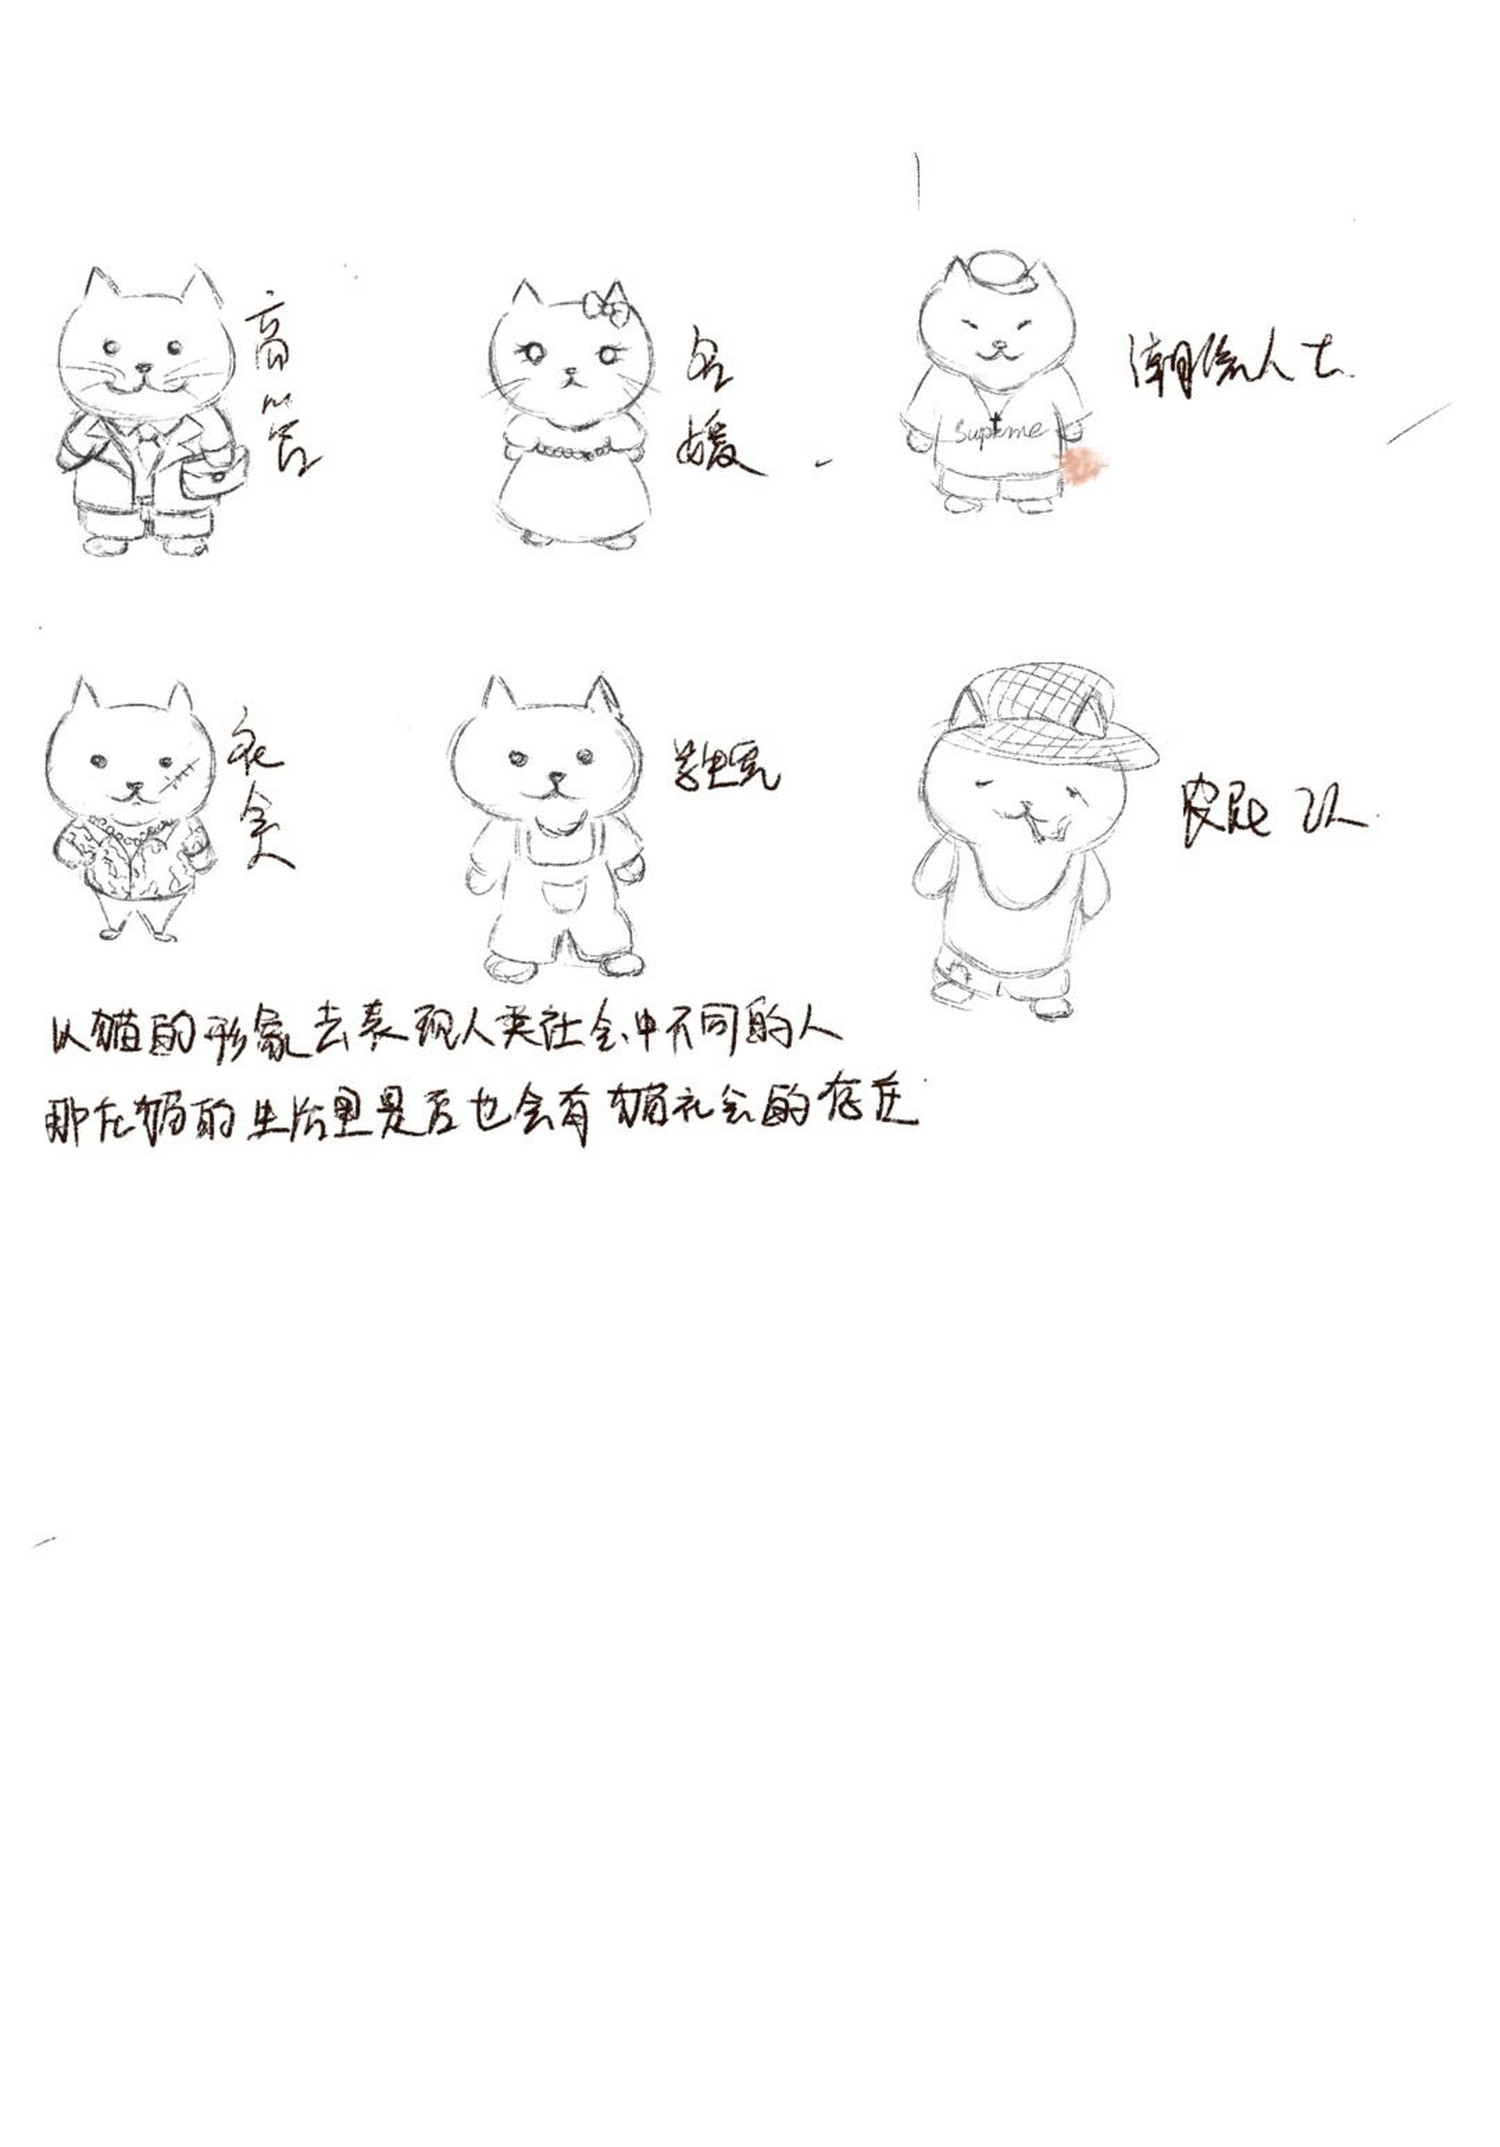 高管
名媛
潮流人士
Supreme
社会人
皮皮队
以猫的形象去表现人类社会中不同的人
那在猫的生活里是否也会有猫社会的存在